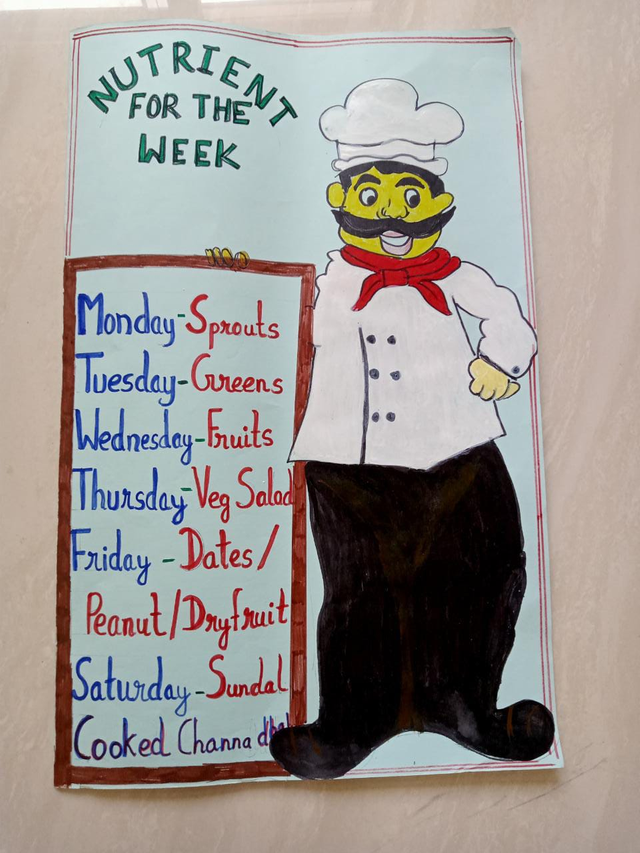 NUTRIENT
FOR THE
WEEK
Monday-Sprouts
Tuesday-Greens
Wednesday-Fruits
Thursday-Veg Salad
Friday - Dates/
Peanut/Dryfruit
Saturday-Sundal
Cooked Channa